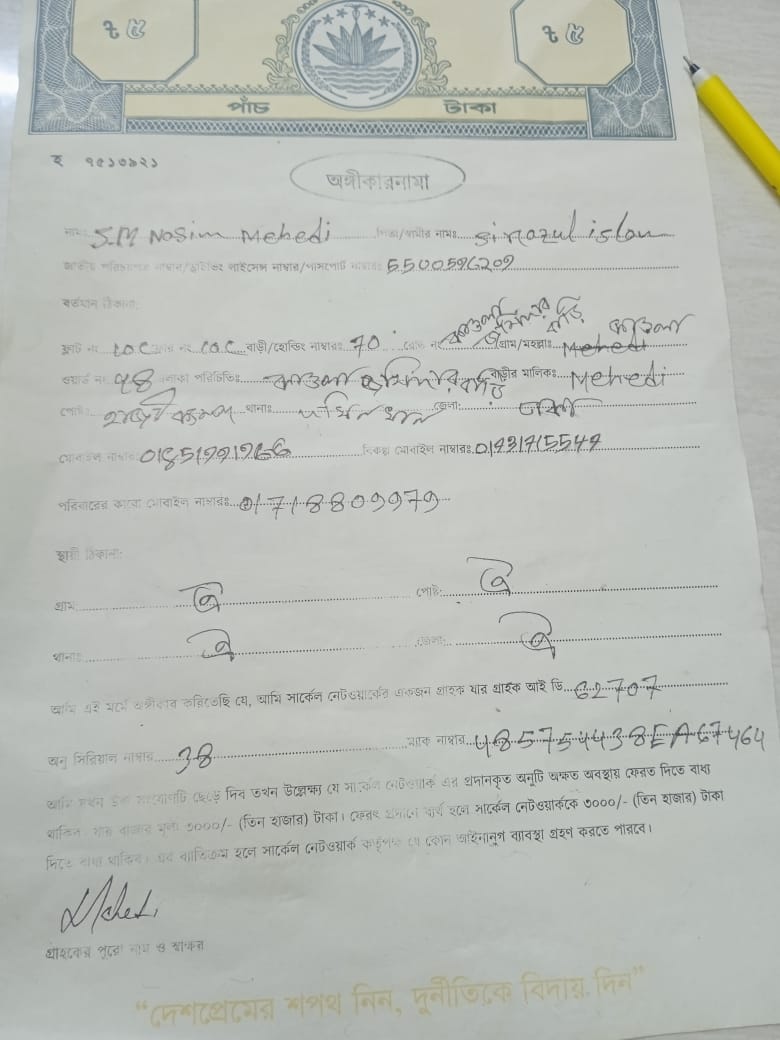 ৳ ৫ ৳ ৫
পাঁচ টাকা
ই ৭৫১০৬২১
অঙ্গীকারনামা
নাম: S.M Nasim Mehedi পিতা/স্বামীর নামঃ Sirazul islam
জাতীয় পরিচয়পত্র নাম্বার/ড্রাইভিং লাইসেন্স নাম্বার/পাসপোর্ট নাম্বারঃ 5500596209
বর্তমান ঠিকানা:
ফ্লাট নং বাড়ী/হোল্ডিং নাম্বারঃ 70 রোড নং গ্রাম/মহল্লাঃ কাওলা
ওয়ার্ড নং এলাকা পরিচিতিঃ কাওলা জমিদার বাড়ি বাড়ীর মালিকঃ Mehedi
পোষ্টঃ থানাঃ জেলা: ঢাকা
মোবাইল নাম্বারঃ বিকল্প মোবাইল নাম্বারঃ
পরিবারের কারো মোবাইল নাম্বারঃ
স্থায়ী ঠিকানা:
গ্রাম: ঐ পোষ্ট: ঐ
থানাঃ ঐ জেলা: ঐ
আমি এই মর্মে অঙ্গীকার করিতেছি যে, আমি সার্কেল নেটওয়ার্কের একজন গ্রাহক যার গ্রাহক আই ডি 62707
অনু সিরিয়াল নাম্বার 38 ম্যাক নাম্বার 48575443BEA67464
আমি যখন উক্ত সংযোগটি ছেড়ে দিব তখন উল্লেক্ষ্য যে সার্কেল নেটওয়ার্ক এর প্রদানকৃত অনুটি অক্ষত অবস্থায় ফেরত দিতে বাধ্য
থাকিব, যার বাজার মূল্য ৩০০০/- (তিন হাজার) টাকা। ফেরৎ প্রদানে ব্যর্থ হলে সার্কেল নেটওয়ার্ককে ৩০০০/- (তিন হাজার) টাকা
দিতে বাধ্য থাকিব। এর ব্যতিক্রম হলে সার্কেল নেটওয়ার্ক কর্তৃপক্ষ যে কোন আইনানুগ ব্যাবস্থা গ্রহণ করতে পারবে।
Mehedi
গ্রাহকের পুরো নাম ও স্বাক্ষর
“দেশপ্রেমের শপথ নিন, দুর্নীতিকে বিদায় দিন”